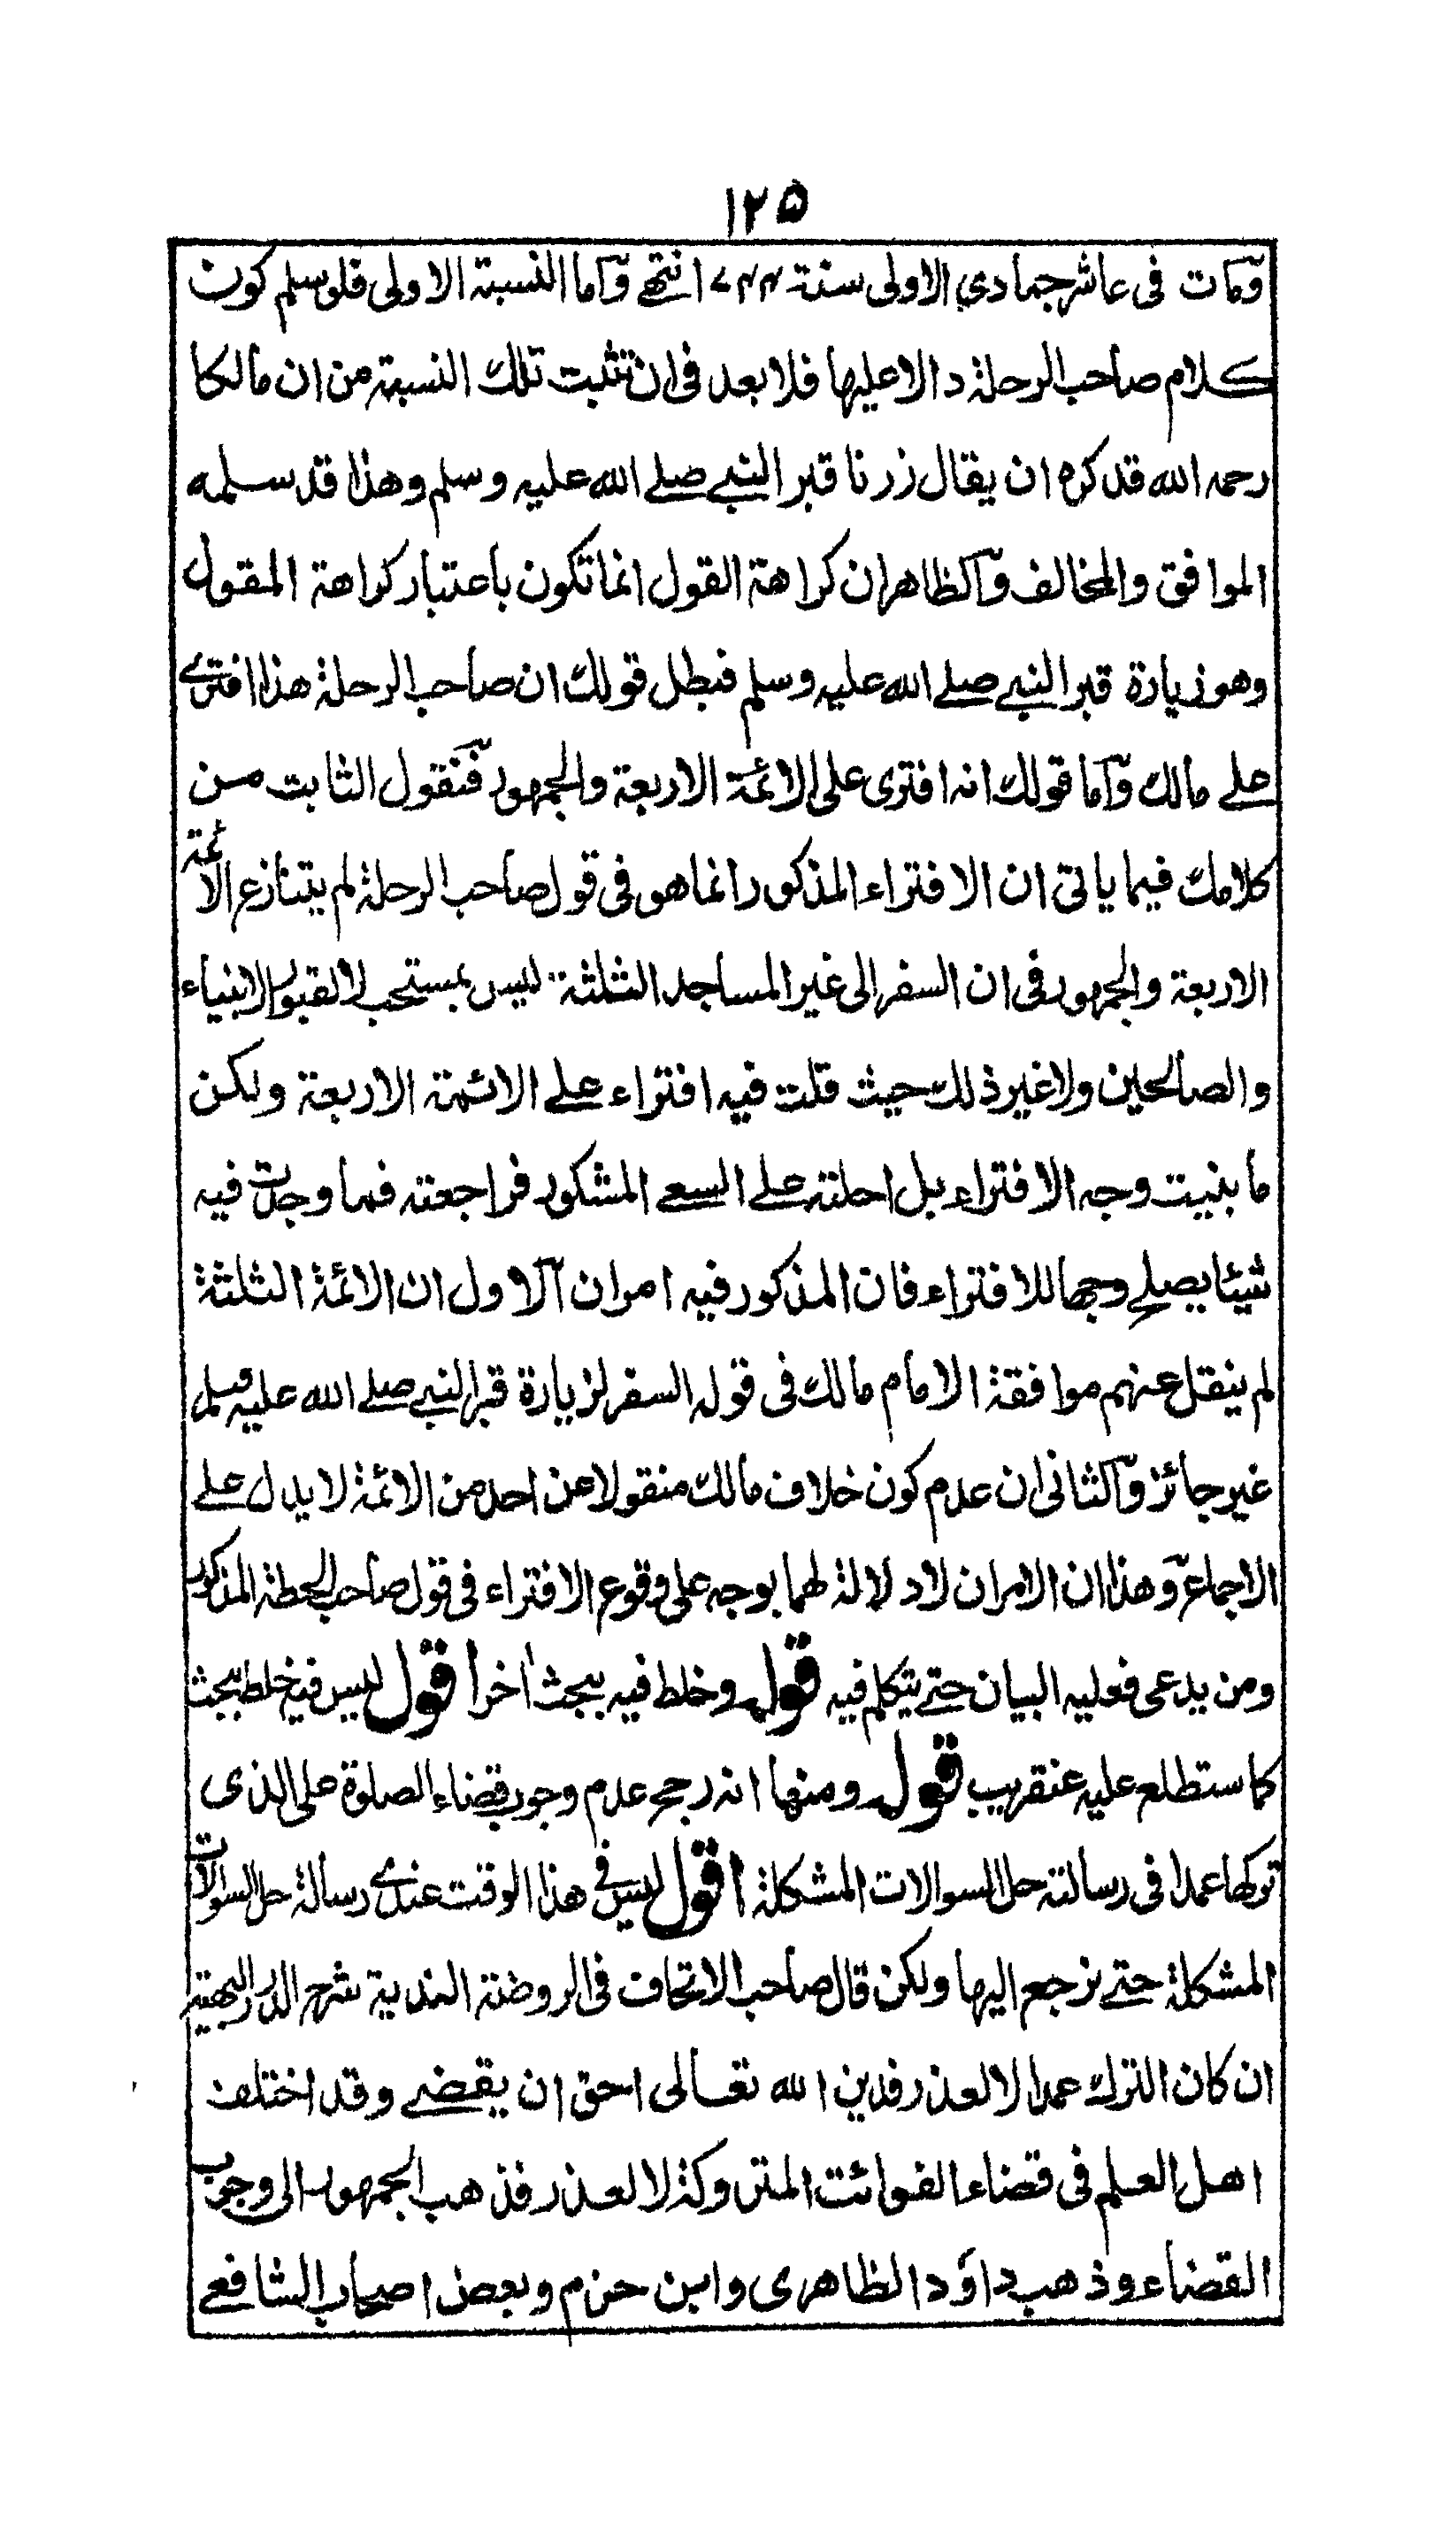 ١٢٥
ومات فى عاشر جمادي الاولى سنة ٧٤٤ انتهى وأما النسبة الاولى فلو سلم كون
كلام صاحب الرحلة دالا عليها فلا بعد فى ان تثبت تلك النسبة من ان مالكا
رحمه الله قد كره ان يقال زرنا قبر النبي صلے الله عليه وسلم وهذا قد سلمه
الموافق والمخالف والظاهر ان كراهة القول انما تكون باعتبار كراهة المقول
وهو زيارة قبر النبي صلے الله عليه وسلم فبطل قولك ان صاحب الرحلة هذا افترے
علے مالك وأما قولك انه افترى على الائمة الاربعة والجمهور فنقول الثابت من
كلامك فيما ياتى ان الافتراء المذكور انما هو فى قول صاحب الرحلة لم يتنازع الائمة
الاربعة والجمهور فى ان السفر الى غير المساجد الثلثة ليس بمستحب لا لقبور الانبياء
والصالحين ولا غير ذلك حيث قلت فيه افتراء علے الائمة الاربعة ولكن
ما بنيت وجه الافتراء بل احلته علے السعے المشكور فراجعته فما وجدت فيه
شيئا يصلے وجها للافتراء فان المذكور فيه امران الاول ان الائمة الثلثة
لم ينقل عنهم موافقة الامام مالك فى قوله السفر لزيارة قبر النبي صلے الله عليه وسلم
غير جائز والثانى ان عدم كون خلاف مالك منقولا عن احد من الائمة لا يدل علے
الاجماع وهذان الامران لا دلالة لهما بوجه على وقوع الافتراء فى قول صاحب الحطة المذكور
ومن يدعى فعليه البيان حتے يتكلم فيه قوله وخلط فيه ببحث اخر اقول ليس فيه خلط بحث
كما ستطلع عليه عنقريب قوله ومنها انه رجح عدم وجوب قضاء الصلوة على الذى
تركها عمدا فى رسالته حل السوالات المشكلة اقول ليس فے هذا الوقت عندے رسالة حل السوالات
المشكلة حتے نرجع اليها ولكن قال صاحب الاتحاف فى الروضة الندية شرح الدرر البهية
ان كان الترك عمدا لا لعذر فدين الله تعالى احق ان يقضے وقد اختلف
اهل العلم فى قضاء الفوائت المتروكة لا لعذر فذهب الجمهور الى وجوب
القضاء وذهب داؤد الظاهرى وابن حزم وبعض اصحاب الشافعے